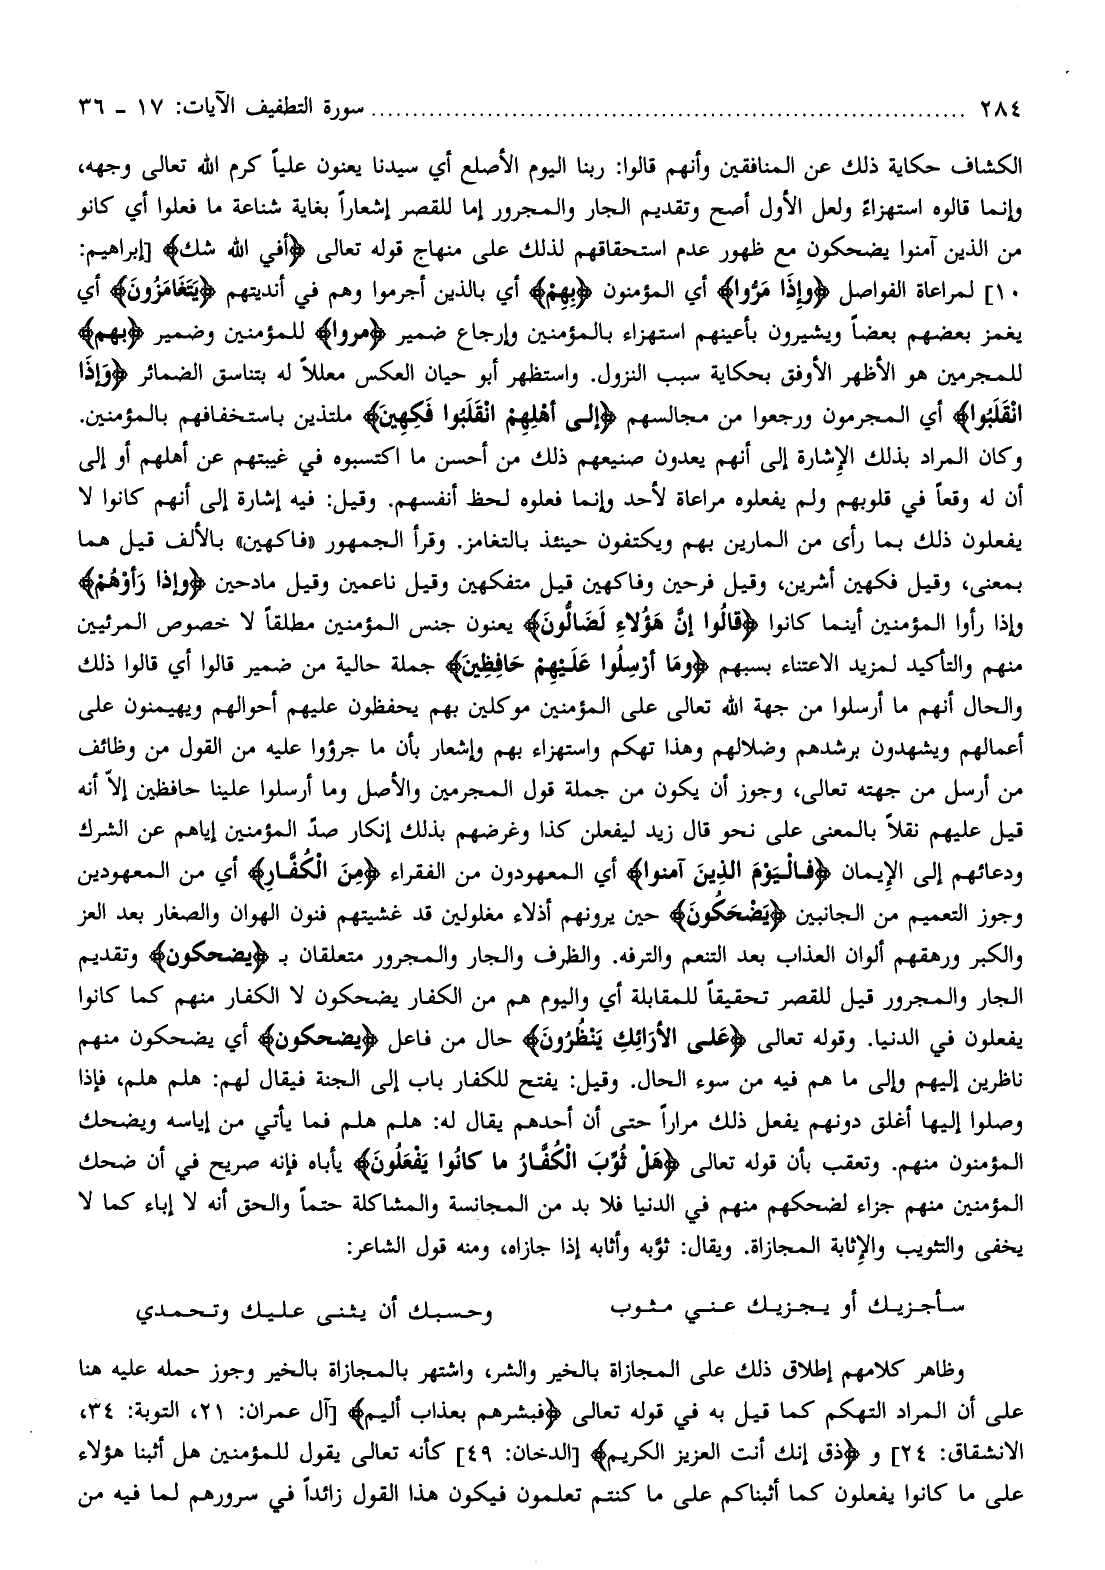 ٢٨٤ ........................................................................ سورة التطفيف الآيات: ١٧ ـ ٣٦
الكشاف حكاية ذلك عن المنافقين وأنهم قالوا: ربنا اليوم الأصلع أي سيدنا يعنون علياً كرم الله تعالى وجهه،
وإنما قالوه استهزاءً ولعل الأول أصح وتقديم الجار والمجرور إما للقصر إشعاراً بغاية شناعة ما فعلوا أي كانو
من الذين آمنوا يضحكون مع ظهور عدم استحقاقهم لذلك على منهاج قوله تعالى ﴿أفي الله شك﴾ [إبراهيم:
١٠] لمراعاة الفواصل ﴿وإِذَا مَرُّوا﴾ أي المؤمنون ﴿بِهِمْ﴾ أي بالذين أجرموا وهم في أنديتهم ﴿يَتَغَامَزُونَ﴾ أي
يغمز بعضهم بعضاً ويشيرون بأعينهم استهزاء بالمؤمنين وإرجاع ضمير ﴿مروا﴾ للمؤمنين وضمير ﴿بهم﴾
للمجرمين هو الأظهر الأوفق بحكاية سبب النزول. واستظهر أبو حيان العكس معللاً له بتناسق الضمائر ﴿وَإِذَا
انْقَلَبُوا﴾ أي المجرمون ورجعوا من مجالسهم ﴿إلى أهْلِهِمْ انْقَلَبُوا فَكِهِينَ﴾ ملتذين باستخفافهم بالمؤمنين.
وكان المراد بذلك الإشارة إلى أنهم يعدون صنيعهم ذلك من أحسن ما اكتسبوه في غيبتهم عن أهلهم أو إلى
أن له وقعاً في قلوبهم ولم يفعلوه مراعاة لأحد وإنما فعلوه لحظ أنفسهم. وقيل: فيه إشارة إلى أنهم كانوا لا
يفعلون ذلك بما رأى من المارين بهم ويكتفون حينئذ بالتغامز. وقرأ الجمهور «فاكهين» بالألف قيل هما
بمعنى، وقيل فكهين أشرين، وقيل فرحين وفاكهين قيل متفكهين وقيل ناعمين وقيل مادحين ﴿وإذا رَأوْهُمْ﴾
وإذا رأوا المؤمنين أينما كانوا ﴿قالُوا إنَّ هَؤُلاءِ لَضَالُّونَ﴾ يعنون جنس المؤمنين مطلقاً لا خصوص المرئيين
منهم والتأكيد لمزيد الاعتناء بسبهم ﴿وما أُرْسِلُوا عَلَيهِمْ حَافِظِينَ﴾ جملة حالية من ضمير قالوا أي قالوا ذلك
والحال أنهم ما أرسلوا من جهة الله تعالى على المؤمنين موكلين بهم يحفظون عليهم أحوالهم ويهيمنون على
أعمالهم ويشهدون برشدهم وضلالهم وهذا تهكم واستهزاء بهم وإشعار بأن ما جرؤوا عليه من القول من وظائف
من أرسل من جهته تعالى، وجوز أن يكون من جملة قول المجرمين والأصل وما أرسلوا علينا حافظين إلاّ أنه
قيل عليهم نقلاً بالمعنى على نحو قال زيد ليفعلن كذا وغرضهم بذلك إنكار صدّ المؤمنين إياهم عن الشرك
ودعائهم إلى الإيمان ﴿فالْيَوْمَ الذِينَ آمنوا﴾ أي المعهودون من الفقراء ﴿مِنَ الْكُفَّارِ﴾ أي من المعهودين
وجوز التعميم من الجانبين ﴿يَضْحَكُونَ﴾ حين يرونهم أذلاء مغلولين قد غشيتهم فنون الهوان والصغار بعد العز
والكبر ورهقهم ألوان العذاب بعد التنعم والترفه. والظرف والجار والمجرور متعلقان بـ ﴿يضحكون﴾ وتقديم
الجار والمجرور قيل للقصر تحقيقاً للمقابلة أي واليوم هم من الكفار يضحكون لا الكفار منهم كما كانوا
يفعلون في الدنيا. وقوله تعالى ﴿عَلى الأرَائِكِ يَنْظُرُونَ﴾ حال من فاعل ﴿يضحكون﴾ أي يضحكون منهم
ناظرين إليهم وإلى ما هم فيه من سوء الحال. وقيل: يفتح للكفار باب إلى الجنة فيقال لهم: هلم هلم، فإذا
وصلوا إليها أغلق دونهم يفعل ذلك مراراً حتى أن أحدهم يقال له: هلم هلم فما يأتي من إياسه ويضحك
المؤمنون منهم. وتعقب بأن قوله تعالى ﴿هَلْ ثُوِّبَ الْكُفَّارُ ما كانُوا يَفْعَلُونَ﴾ يأباه فإنه صريح في أن ضحك
المؤمنين منهم جزاء لضحكهم منهم في الدنيا فلا بد من المجانسة والمشاكلة حتماً والحق أنه لا إباء كما لا
يخفى والتثويب والإثابة المجازاة. ويقال: ثوَّبه وأثابه إذا جازاه، ومنه قول الشاعر:
سأجزيك أو يجزيك عني مثوب وحسبك أن يثنى عليك وتحمدي
وظاهر كلامهم إطلاق ذلك على المجازاة بالخير والشر، واشتهر بالمجازاة بالخير وجوز حمله عليه هنا
على أن المراد التهكم كما قيل به في قوله تعالى ﴿فبشرهم بعذاب أليم﴾ [آل عمران: ٢١، التوبة: ٣٤،
الانشقاق: ٢٤] و ﴿ذق إنك أنت العزيز الكريم﴾ [الدخان: ٤٩] كأنه تعالى يقول للمؤمنين هل أثبنا هؤلاء
على ما كانوا يفعلون كما أثبناكم على ما كنتم تعلمون فيكون هذا القول زائداً في سرورهم لما فيه من